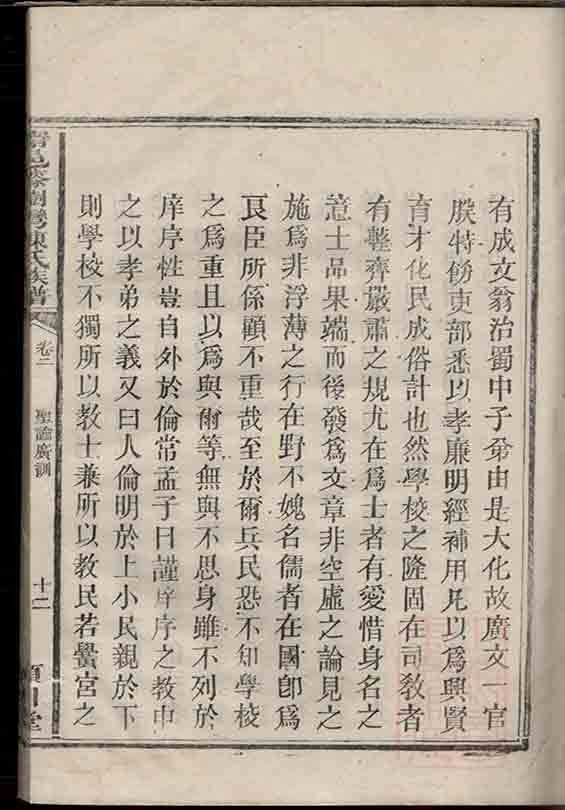 有成文翁治蜀中子弟由是大化故廣文一官
朕特飭吏部悉以孝廉明經補用凡以為興賢
育才化民成俗計也然學校之隆固在司教者
有整齊嚴肅之規尤在為士者有愛惜身名之
意士品果端而後發為文章非空虛之論見之
施為非浮薄之行在野不媿名儒者在國卽為
良臣所係顧不重哉至於爾兵民恐不知學校
之為重且以為與爾等無與不思身雖不列於
庠序性豈自外於倫常孟子曰謹庠序之教申
之以孝弟之義又曰人倫明於上小民親於下
則學校不獨所以教士兼所以教民若黌宮之
陳氏族譜
卷二
聖諭廣訓
十二
堂